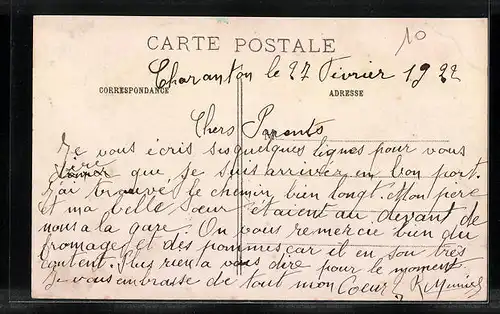 CARTE POSTALE
10
Charanton le 27 Février 1922
CORRESPONDANCE
ADRESSE
Chers Parents
Je vous écris ses quelques lignes pour vous
dire
que je suis arrivez en bon port.
J'ai trouvé le chemin bien longt. Mon père
et ma belle sœur étaient au devant de
nous a la gare. On vous remercie bien du
fromage et des pommes car il en son très
Plus rien a vous dire pour le moment
Je vous embrasse de tout mon Coeur